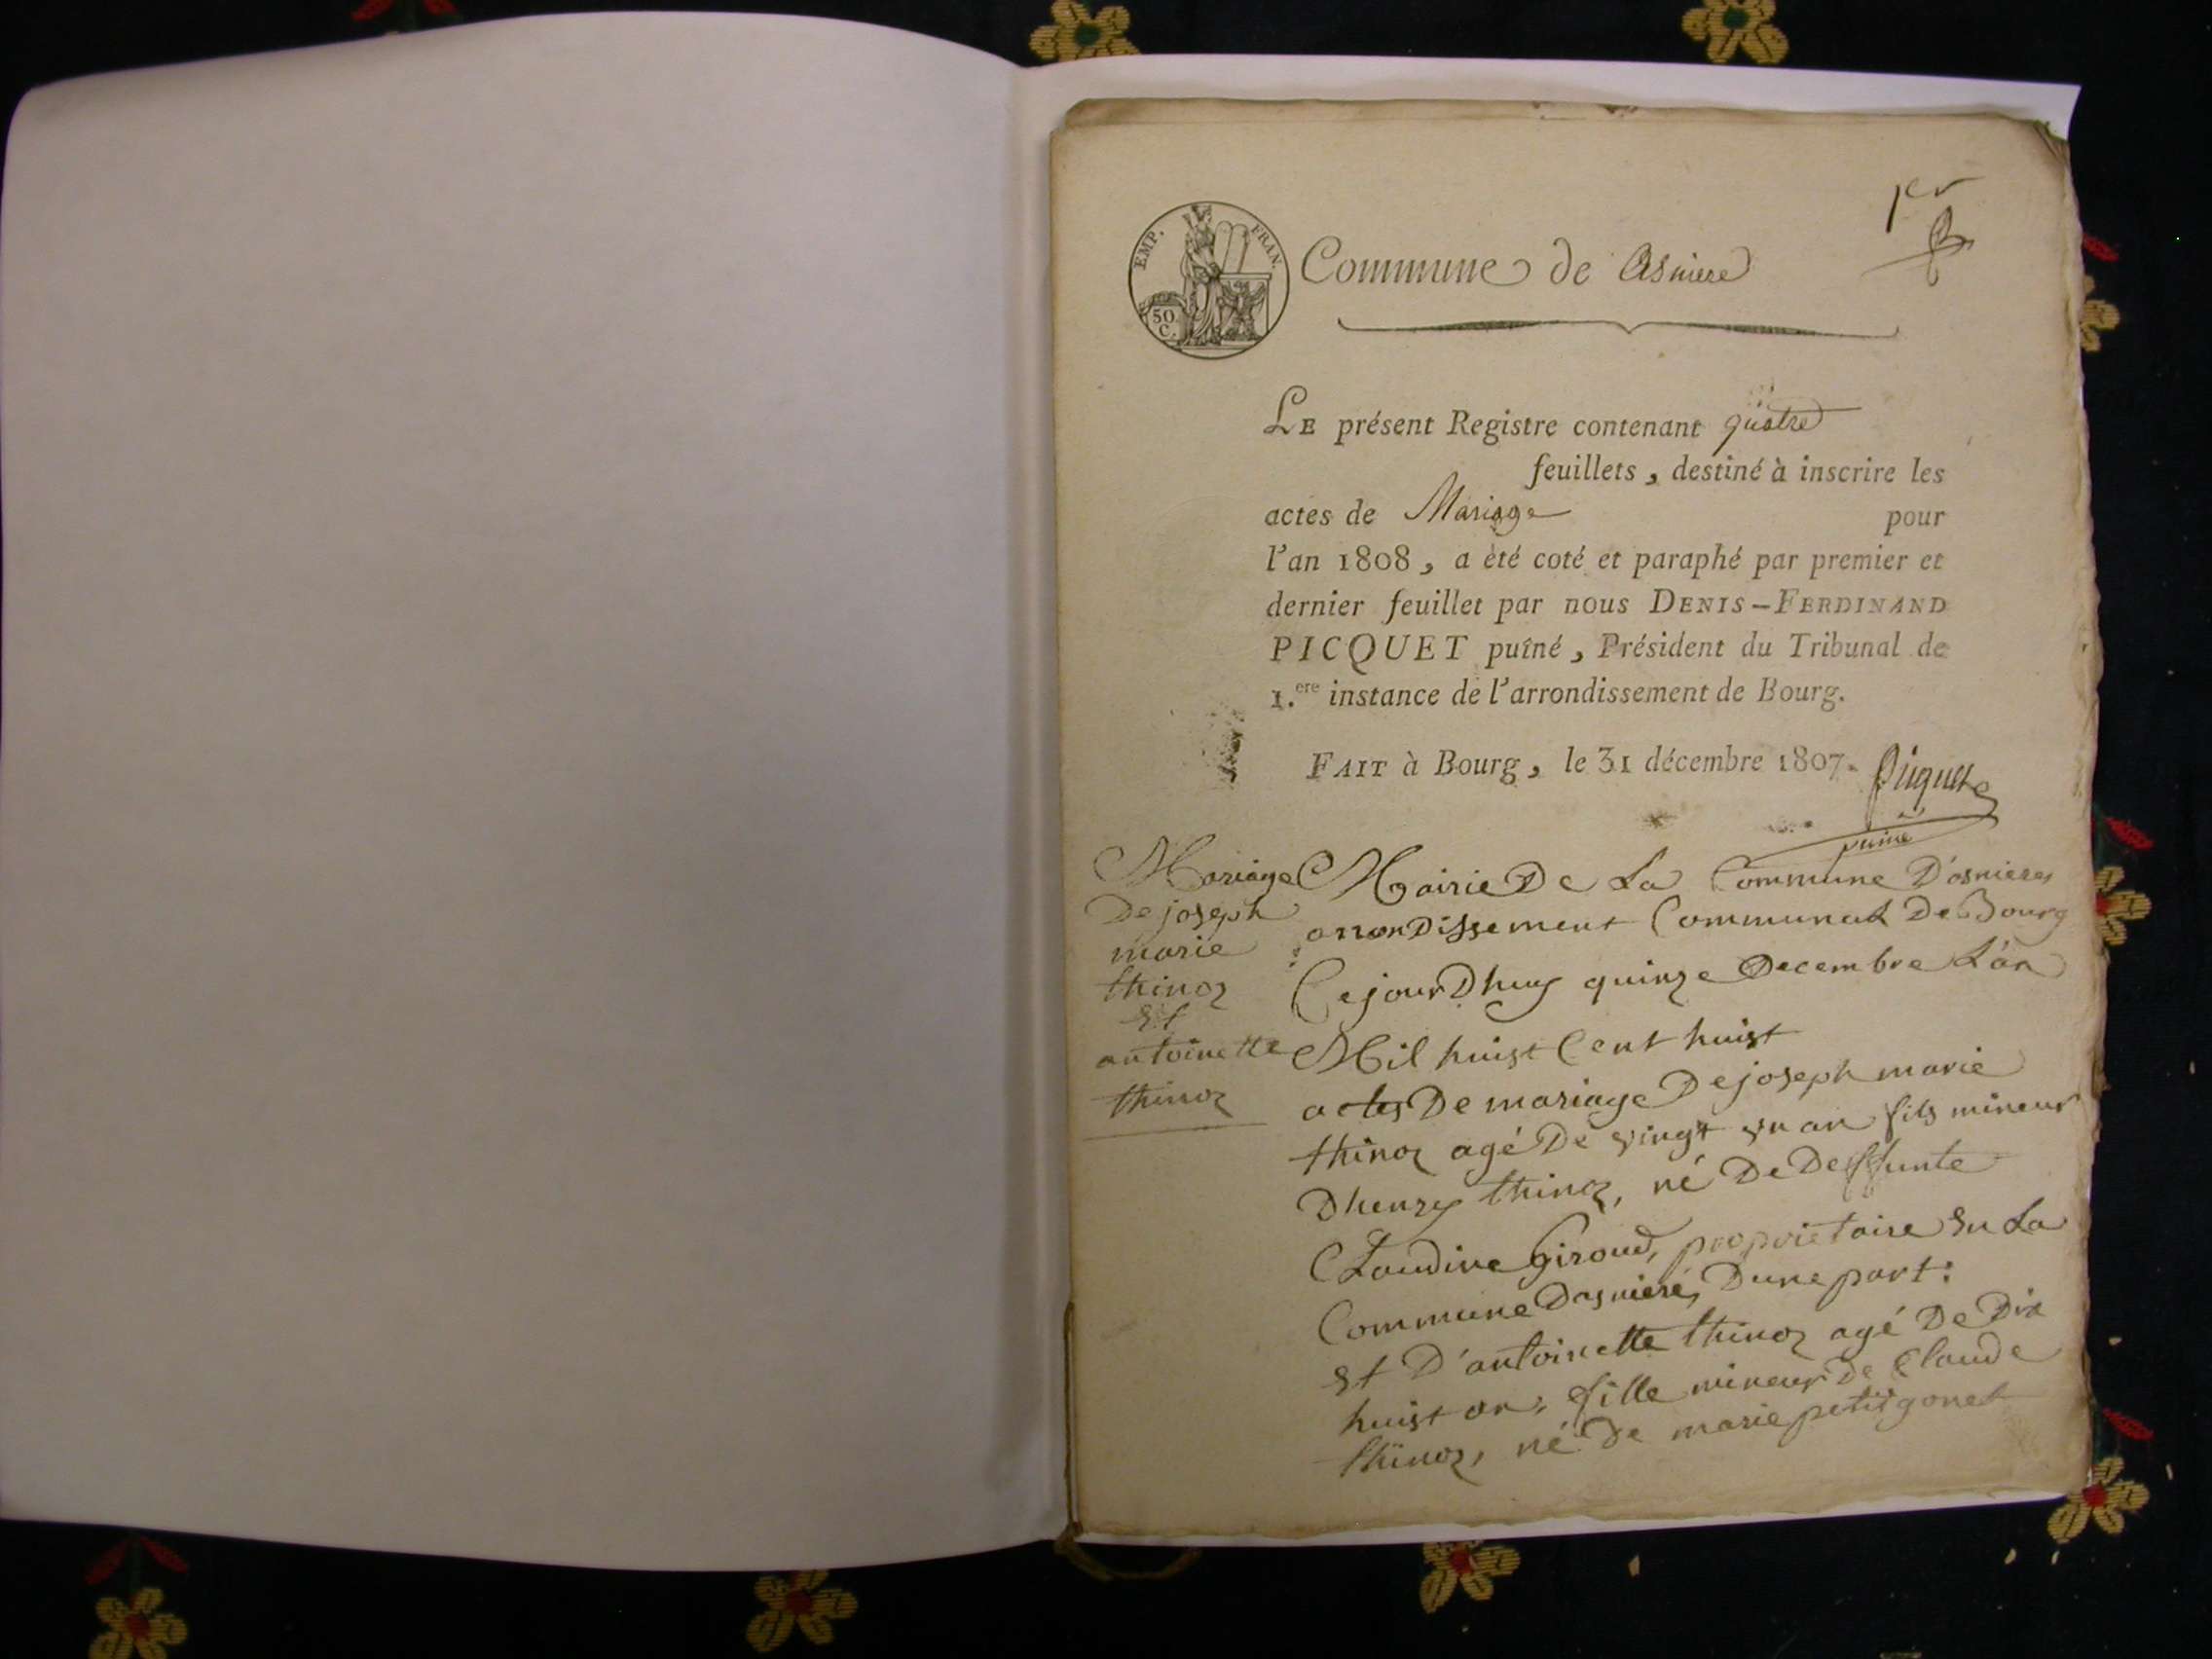 1er
EMP. FRAN.
50.
C.
Commune de Asniere
LE présent Registre contenant quatre
feuillets, destiné à inscrire les
actes de Mariage pour
l'an 1808, a été coté et paraphé par premier et
dernier feuillet par nous DENIS-FERDINAND
PICQUET puîné, Président du Tribunal de
1.ere instance de l'arrondissement de Bourg.
FAIT à Bourg, le 31 décembre 1807.
Picquet
puiné
Mariage
De joseph
marie
thinoz
Et
antoinette
thinoz
Mairie De La Commune D'asnieres
arrondissement Communal De Bourg
Cejourdhuy quinze Decembre L'an
Mil huist Cent huist
actes De mariage De joseph marie
thinoz agé De vingt un an fils mineur
Dhenry thinoz, né De Deffunte
Claudine Giroud, proprietaire En La
Commune Dasniere, Dune part:
Et D'antoinette thinoz agé De Dix
huist an, fille mineur De Claude
thinoz, né De marie petitgonet